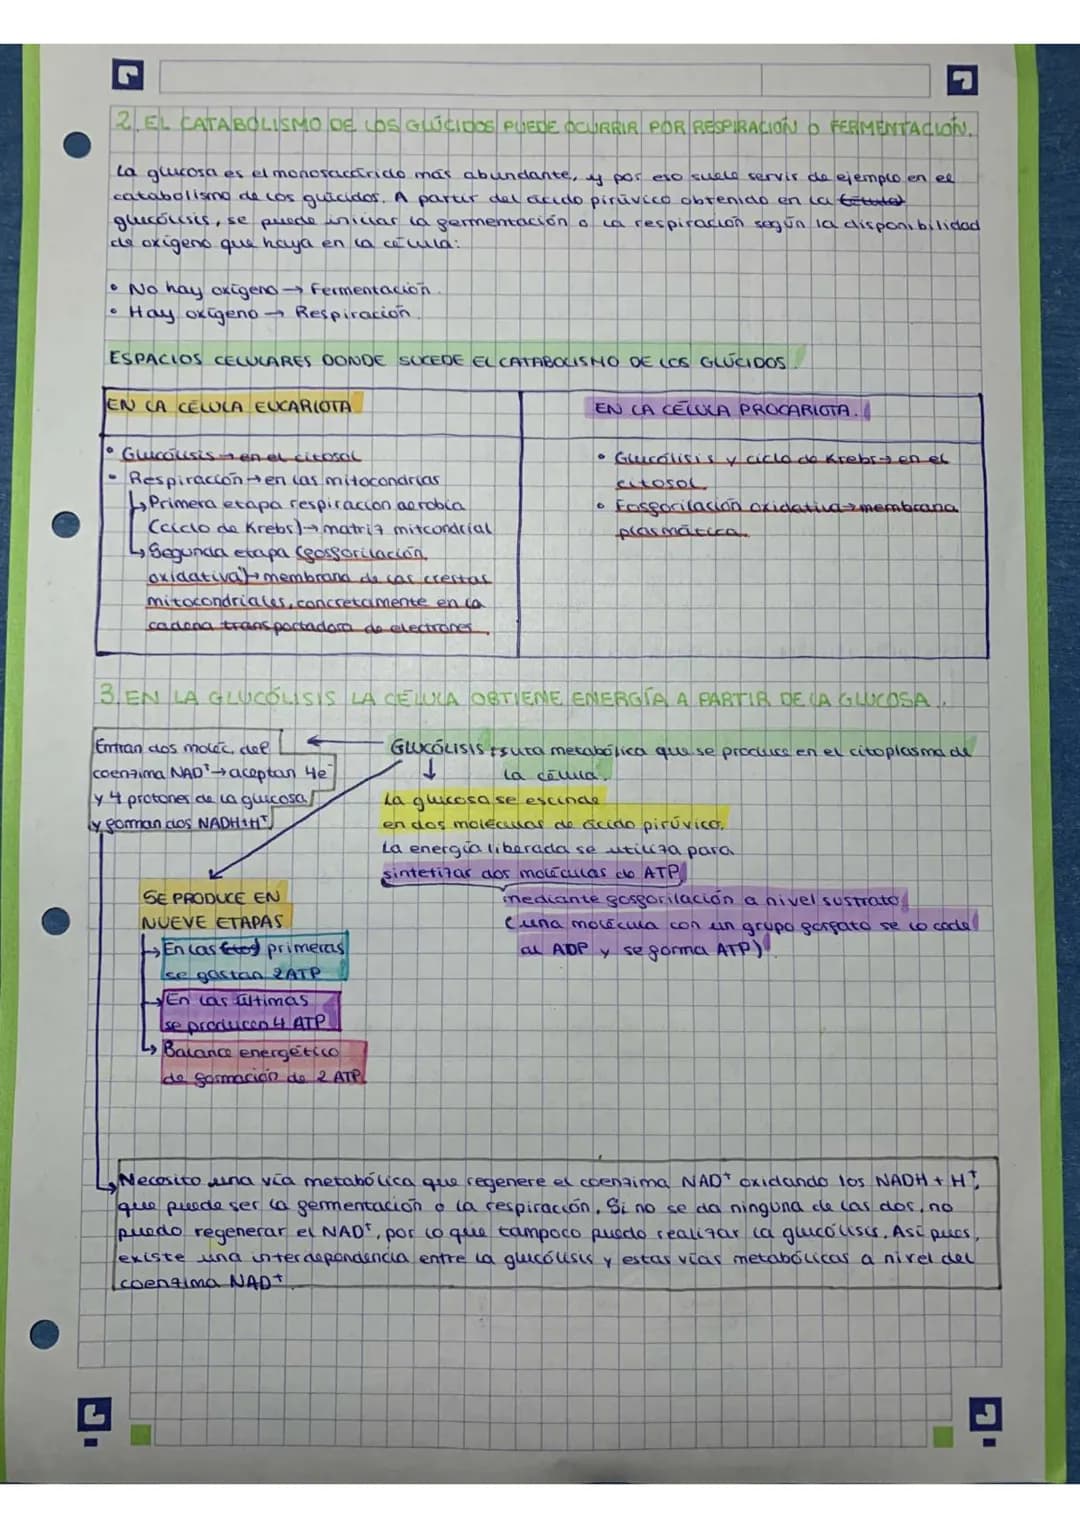 2. EL CATABOLISMO DE LOS GLÚCIDOS PUEDE OCURRIR POR RESPIRACIÓN O FERMENTACIÓN.
La glucosa es el monosacárido más abundante, y por eso suele servir de ejemplo en el
catabolismo de los glúcidos. A partir del ácido pirúvico obtenido en la
glucólisis, se puede iniciar la fermentación o la respiración según la disponibilidad
de oxígeno que haya en la célula:
• No hay oxígeno → Fermentación.
• Hay oxígeno → Respiración.
ESPACIOS CELULARES DONDE SUCEDE EL CATABOLISMO DE LOS GLÚCIDOS
EN LA CÉLULA EUCARIOTA
• Glucólisis → en el citosol
• Respiración → en las mitocondrias
↳ Primera etapa respiración aerobia
(ciclo de Krebs) → matriz mitcondrial
↳ Segunda etapa (fosforilación
oxidativa) → membrana de las crestas
mitocondriales, concretamente en la
cadena transportadora de electrones.
EN LA CÉLULA PROCARIOTA.
• Glucólisis y ciclo de Krebs → en el
citosol
• Fosforilación oxidativa → membrana
plasmática.
3. EN LA GLUCÓLISIS LA CÉLULA OBTIENE ENERGÍA A PARTIR DE LA GLUCOSA.
GLUCÓLISIS: ruta metabólica que se produce en el citoplasma de
la célula.
Entran dos moléc. del
coenzima NAD⁺ → aceptan 4e⁻
y 4 protones de la glucosa
y forman dos NADH+H⁺
La glucosa se escinde
en dos moléculas de ácido pirúvico.
La energía liberada se utiliza para
sintetizar dos moléculas de ATP
mediante fosforilación a nivel sustrato
(una molécula con un grupo fosfato se lo cede
al ADP y se forma ATP)
SE PRODUCE EN
NUEVE ETAPAS
↳ En las primeras
se gastan 2 ATP
→ En las últimas
se producen 4 ATP
↳ Balance energético
de formación de 2 ATP
Necesito una vía metabólica que regenere el coenzima NAD⁺ oxidando los NADH + H⁺,
que puede ser la fermentación o la respiración. Si no se da ninguna de las dos, no
puedo regenerar el NAD⁺, por lo que tampoco puedo realizar la glucólisis. Así pues,
existe una interdependencia entre la glucólisis y estas vías metabólicas a nivel del
coenzima NAD⁺.